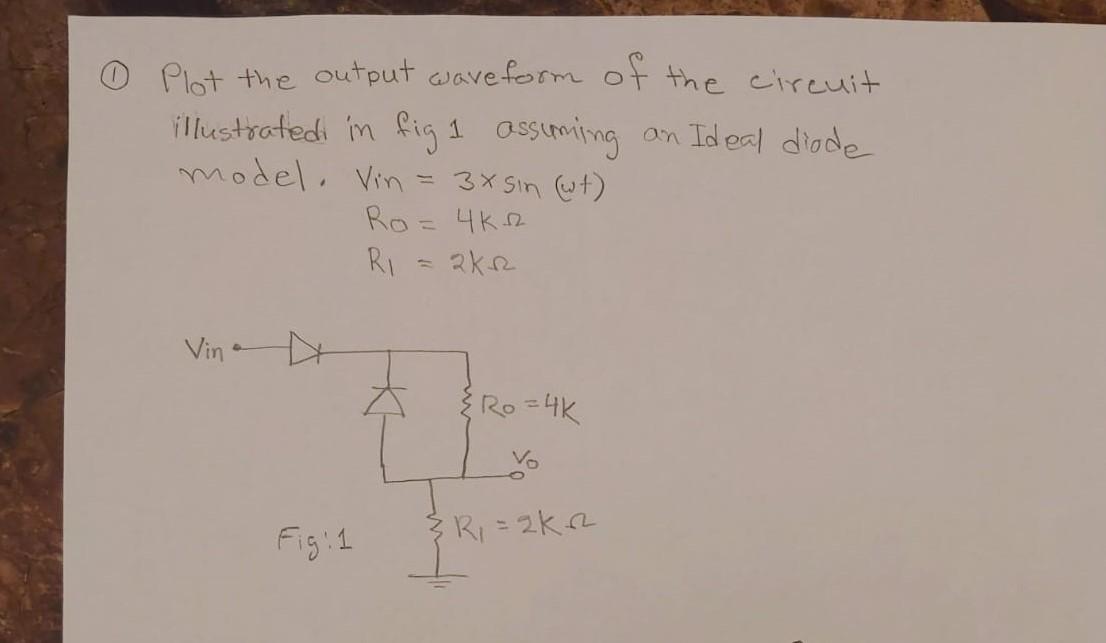 ① Plot the output waveform of the circuit
illustrated in fig 1 assuming an Ideal diode
model. Vin = 3×sin (ωt)
Ro = 4KΩ
R1 = 2KΩ
Vin
Ro = 4K
Vo
R1 = 2KΩ
Fig:1